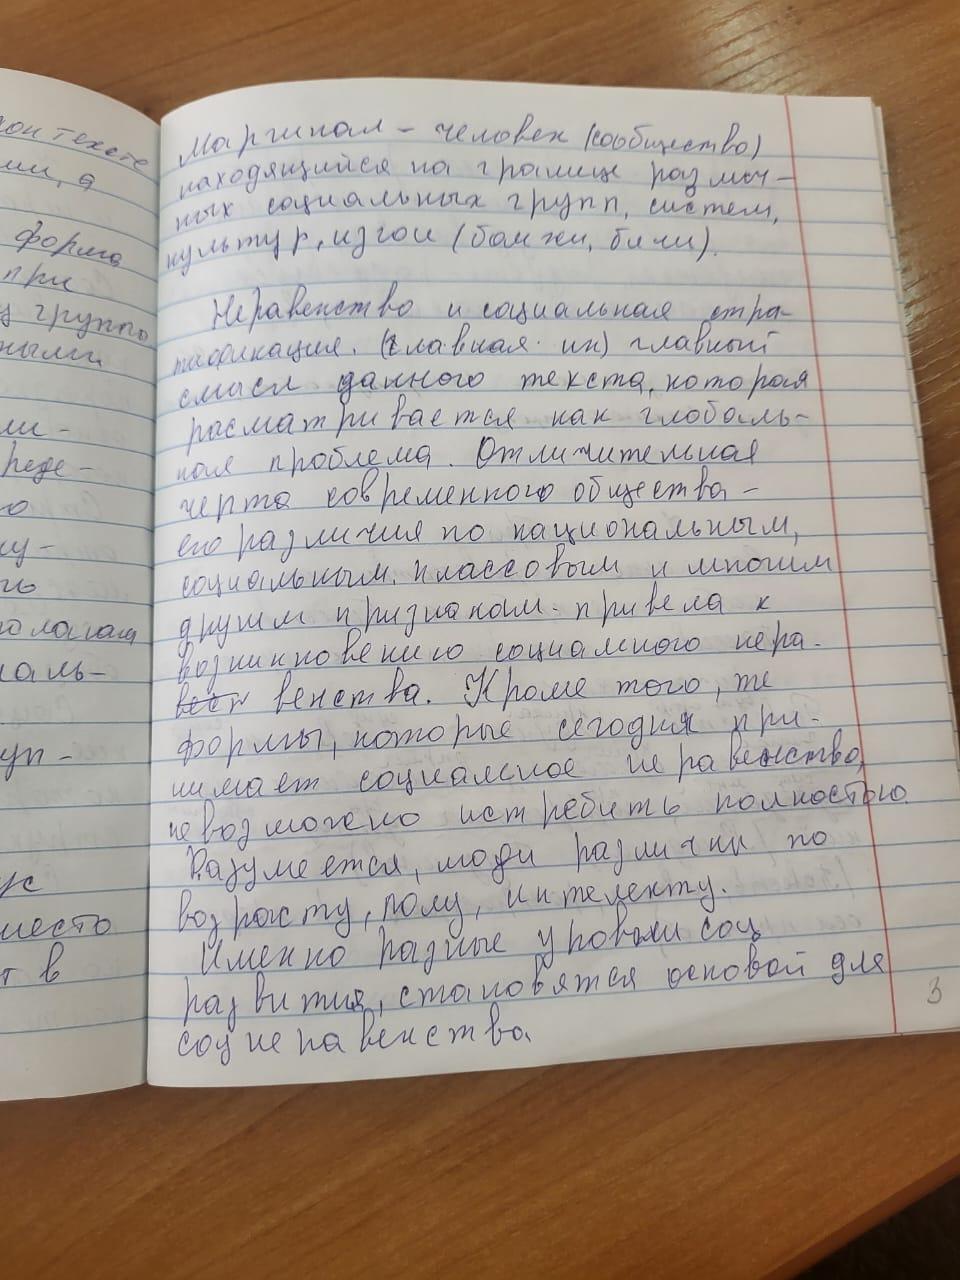 кон тексте
ми, а
форма
при
группо
ными
ли-
реде-
го
лагаа
аль-
уп-
ус
место
т в
Маргинал – человек (сообщество)
находящийся на границе различ-
ных социальных групп, систем,
культур, изгои (бомжи, бичи).
Неравенство и социальная стра-
тификация. (главная ин) главный
смысл данного текста, которая
расматривается как глобаль-
ная проблема. Отличительная
черта современного общества –
его различия по национальным,
социальным, классовым и многим
другим признакам. привела к
возникновению социального нера-
венства. Кроме того, те
формы, которые сегодня при-
нимает социальное неравенство,
невозможно истребить полностью.
Разумеется, люди различны по
возрасту, полу, интелекту.
Именно разные уровни соц
развития, становятся основой для
соц неравенства.
3